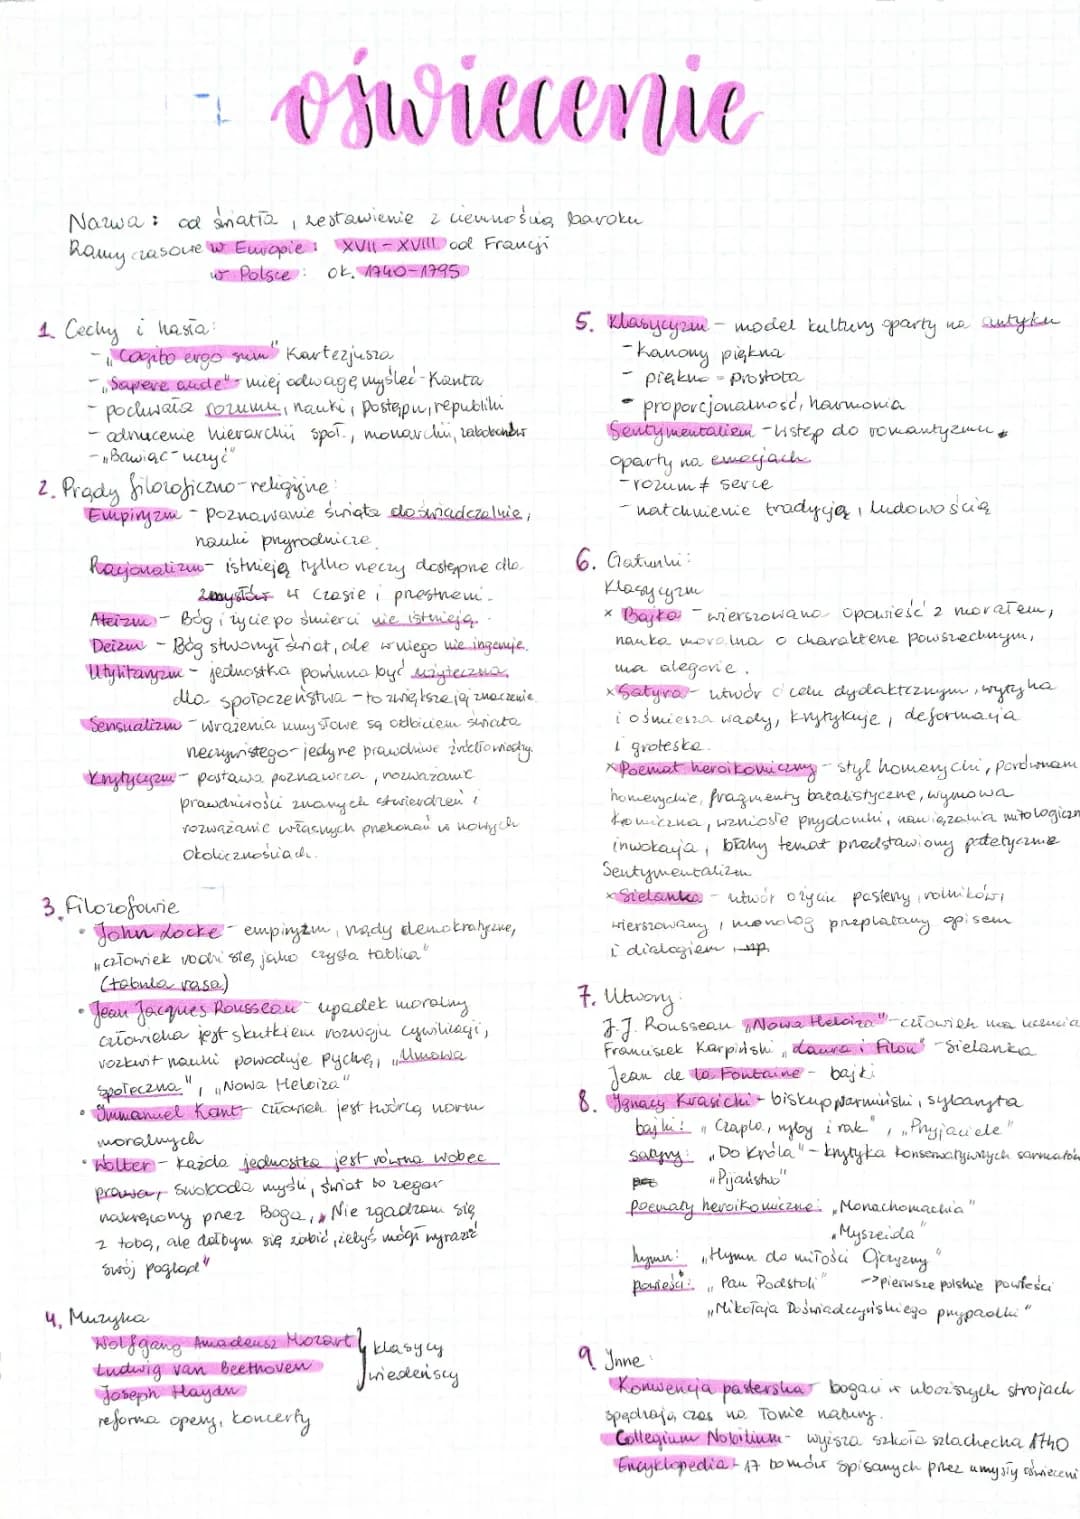 oświecenie
Nazwa: od światła, zestawienie z ciemnością baroku
Ramy czasowe w Europie: XVII-XVIII od Francji
w Polsce: ok. 1740-1795
1. Cechy i hasła:
- "Cogito ergo sum" Kartezjusza
- "Sapere aude" - miej odwagę myśleć - Kanta
- pochwała rozumu, nauki, postępu, republiki
- odrzucenie hierarchii społ., monarchii, zabobonów
- "Bawiąc-uczyć"
2. Prądy filozoficzno-religijne:
Empiryzm - poznawanie świata doświadczalnie,
nauki przyrodnicze.
Racjonalizm - istnieją tylko rzeczy dostępne dla
zmysłów w czasie i przestrzeni.
Ateizm - Bóg i życie po śmierci nie istnieją.
Deizm - Bóg stworzył świat, ale w niego nie ingeruje.
Utylitaryzm - jednostka powinna być użyteczna
dla społeczeństwa - to zwiększa jej znaczenie
Sensualizm - wrażenia umysłowe są odbiciem świata
rzeczywistego - jedyne prawdziwe źródło wiedzy.
Krytycyzm - postawa poznawcza, rozważanie
prawdziwości znanych stwierdzeń i
rozważanie własnych przekonań w nowych
okolicznościach.
3. Filozofowie
• John Locke - empiryzm, rządy demokratyczne,
"człowiek rodzi się, jako czysta tablica"
(tabula rasa)
• Jean Jacques Rousseau - upadek moralny
człowieka jest skutkiem rozwoju cywilizacji,
rozkwit nauki powoduje pychę, "Umowa
społeczna", "Nowa Heloiza"
• Immanuel Kant - człowiek jest twórcą norm
moralnych
• Wolter - każda jednostka jest równa wobec
prawa, swoboda myśli, świat to zegar
nakręcony przez Boga, "Nie zgadzam się
z tobą, ale dałbym się zabić, żebyś mógł wyrazić
swój pogląd"
4. Muzyka
Wolfgang Amadeusz Mozart
Ludwig van Beethoven
Joseph Haydn
klasycy
wiedeńscy
reforma opery, koncerty
5. Klasycyzm - model kultury oparty na antyku
- kanony piękna
- piękno = prostota
- proporcjonalność, harmonia
Sentymentalizm - wstęp do romantyzmu,
oparty na emocjach
- rozum ≠ serce
- natchnienie tradycją, ludowością
6. Gatunki:
Klasycyzm
x Bajka - wierszowana opowieść z morałem,
nauka moralna o charakterze powszechnym,
ma alegorie.
x Satyra - utwór o celu dydaktcznym, wytyka
i ośmiesza wady, krytykuje, deformacja
i groteska.
x Poemat heroikomiczny - styl homerycki, porównani
homeryckie, fragmenty batalistyczne, wymowa
komiczna, wzniosłe przydomki, nawiązania mitologiczn
inwokacja, błahy temat przedstawiony patetycznie
Sentymentalizm
x Sielanka - utwór o życiu pasterzy, rolników,
wierszowany, monolog przeplatany opisem
i dialogiem
7. Utwory:
J.J. Rousseau "Nowa Heloiza" - człowiek ma uczucia
Franciszek Karpiński "Laura i Filon" - sielanka
Jean de la Fontaine - bajki
8. Ignacy Krasicki - biskup warmiński, sybaryta
bajki: "Czapla, ryby i rak", "Przyjaciele"
satyry: "Do Króla" - krytyka konserwatywnych sarmatów
"Pijaństwo"
poematy heroikomiczne: "Monachomachia"
"Myszeida"
hymn: "Hymn do miłości Ojczyzny"
powieści: "Pan Podstoli" -> pierwsze polskie powieści
"Mikołaja Doświadczyńskiego przypadki"
9. Inne:
Konwencja pasterska - bogaci w uboższych strojach
spędzają czas na łonie natury.
Collegium Nobilium - wyższa szkoła szlachecka 1740
Encyklopedia - 17 tomów spisanych przez umysły oświeceni